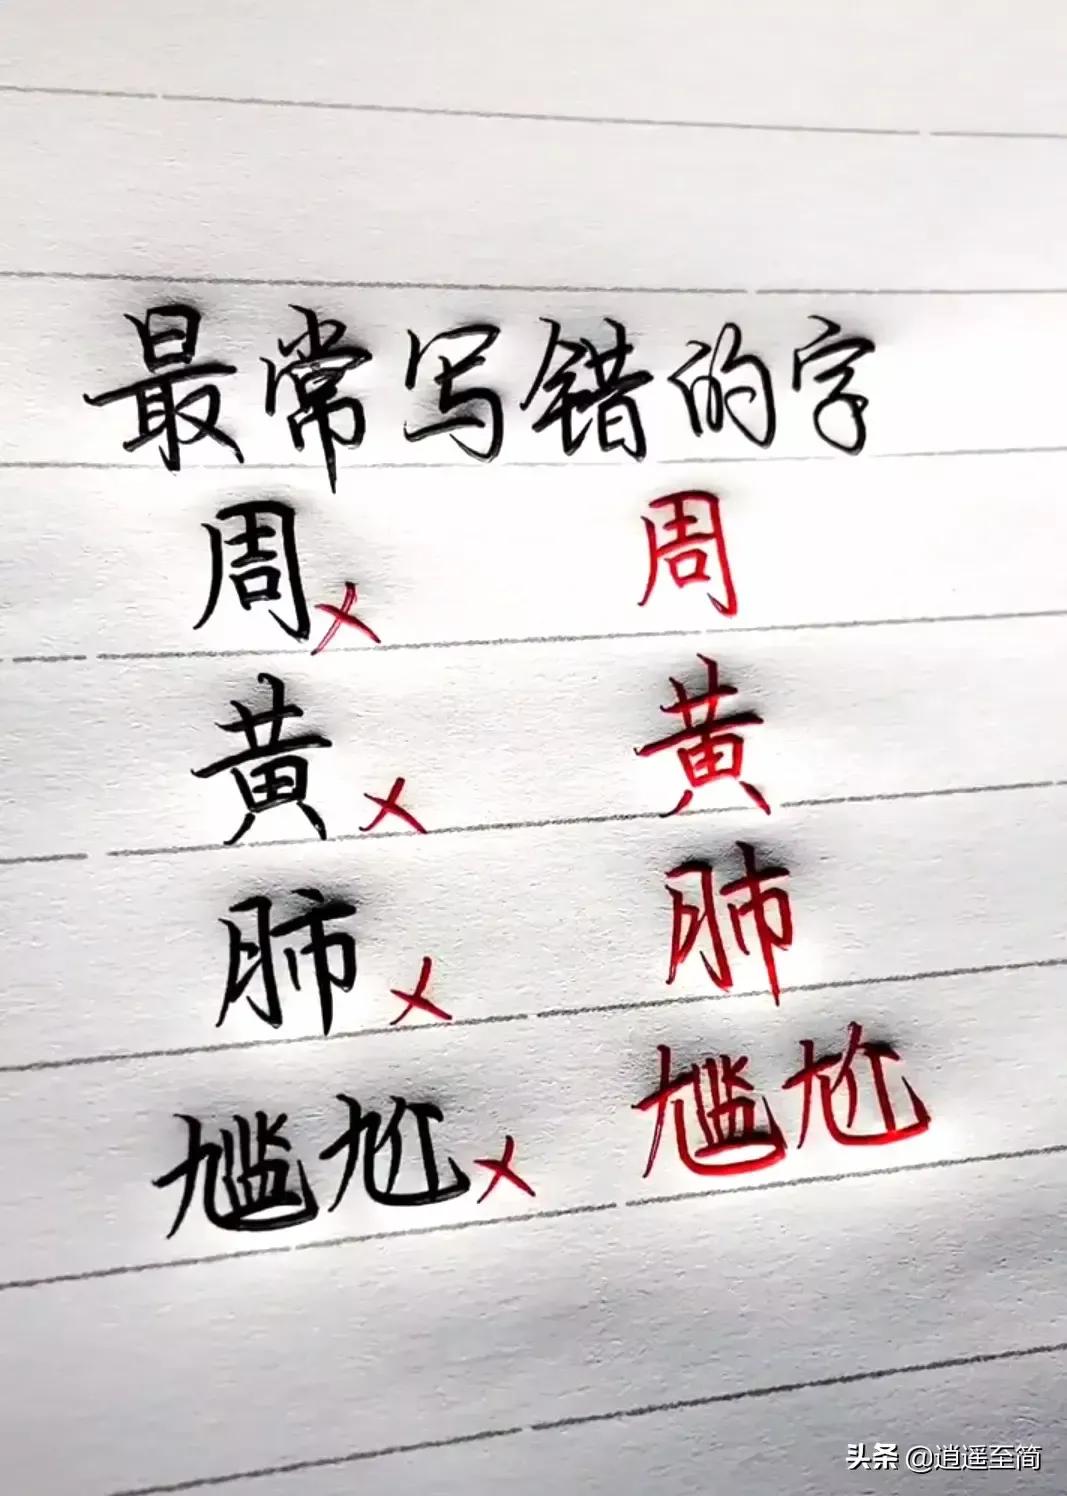 最常写错的字
周× 周
黄× 黄
肺× 肺
尴尬× 尴尬
头条 @逍遥至简